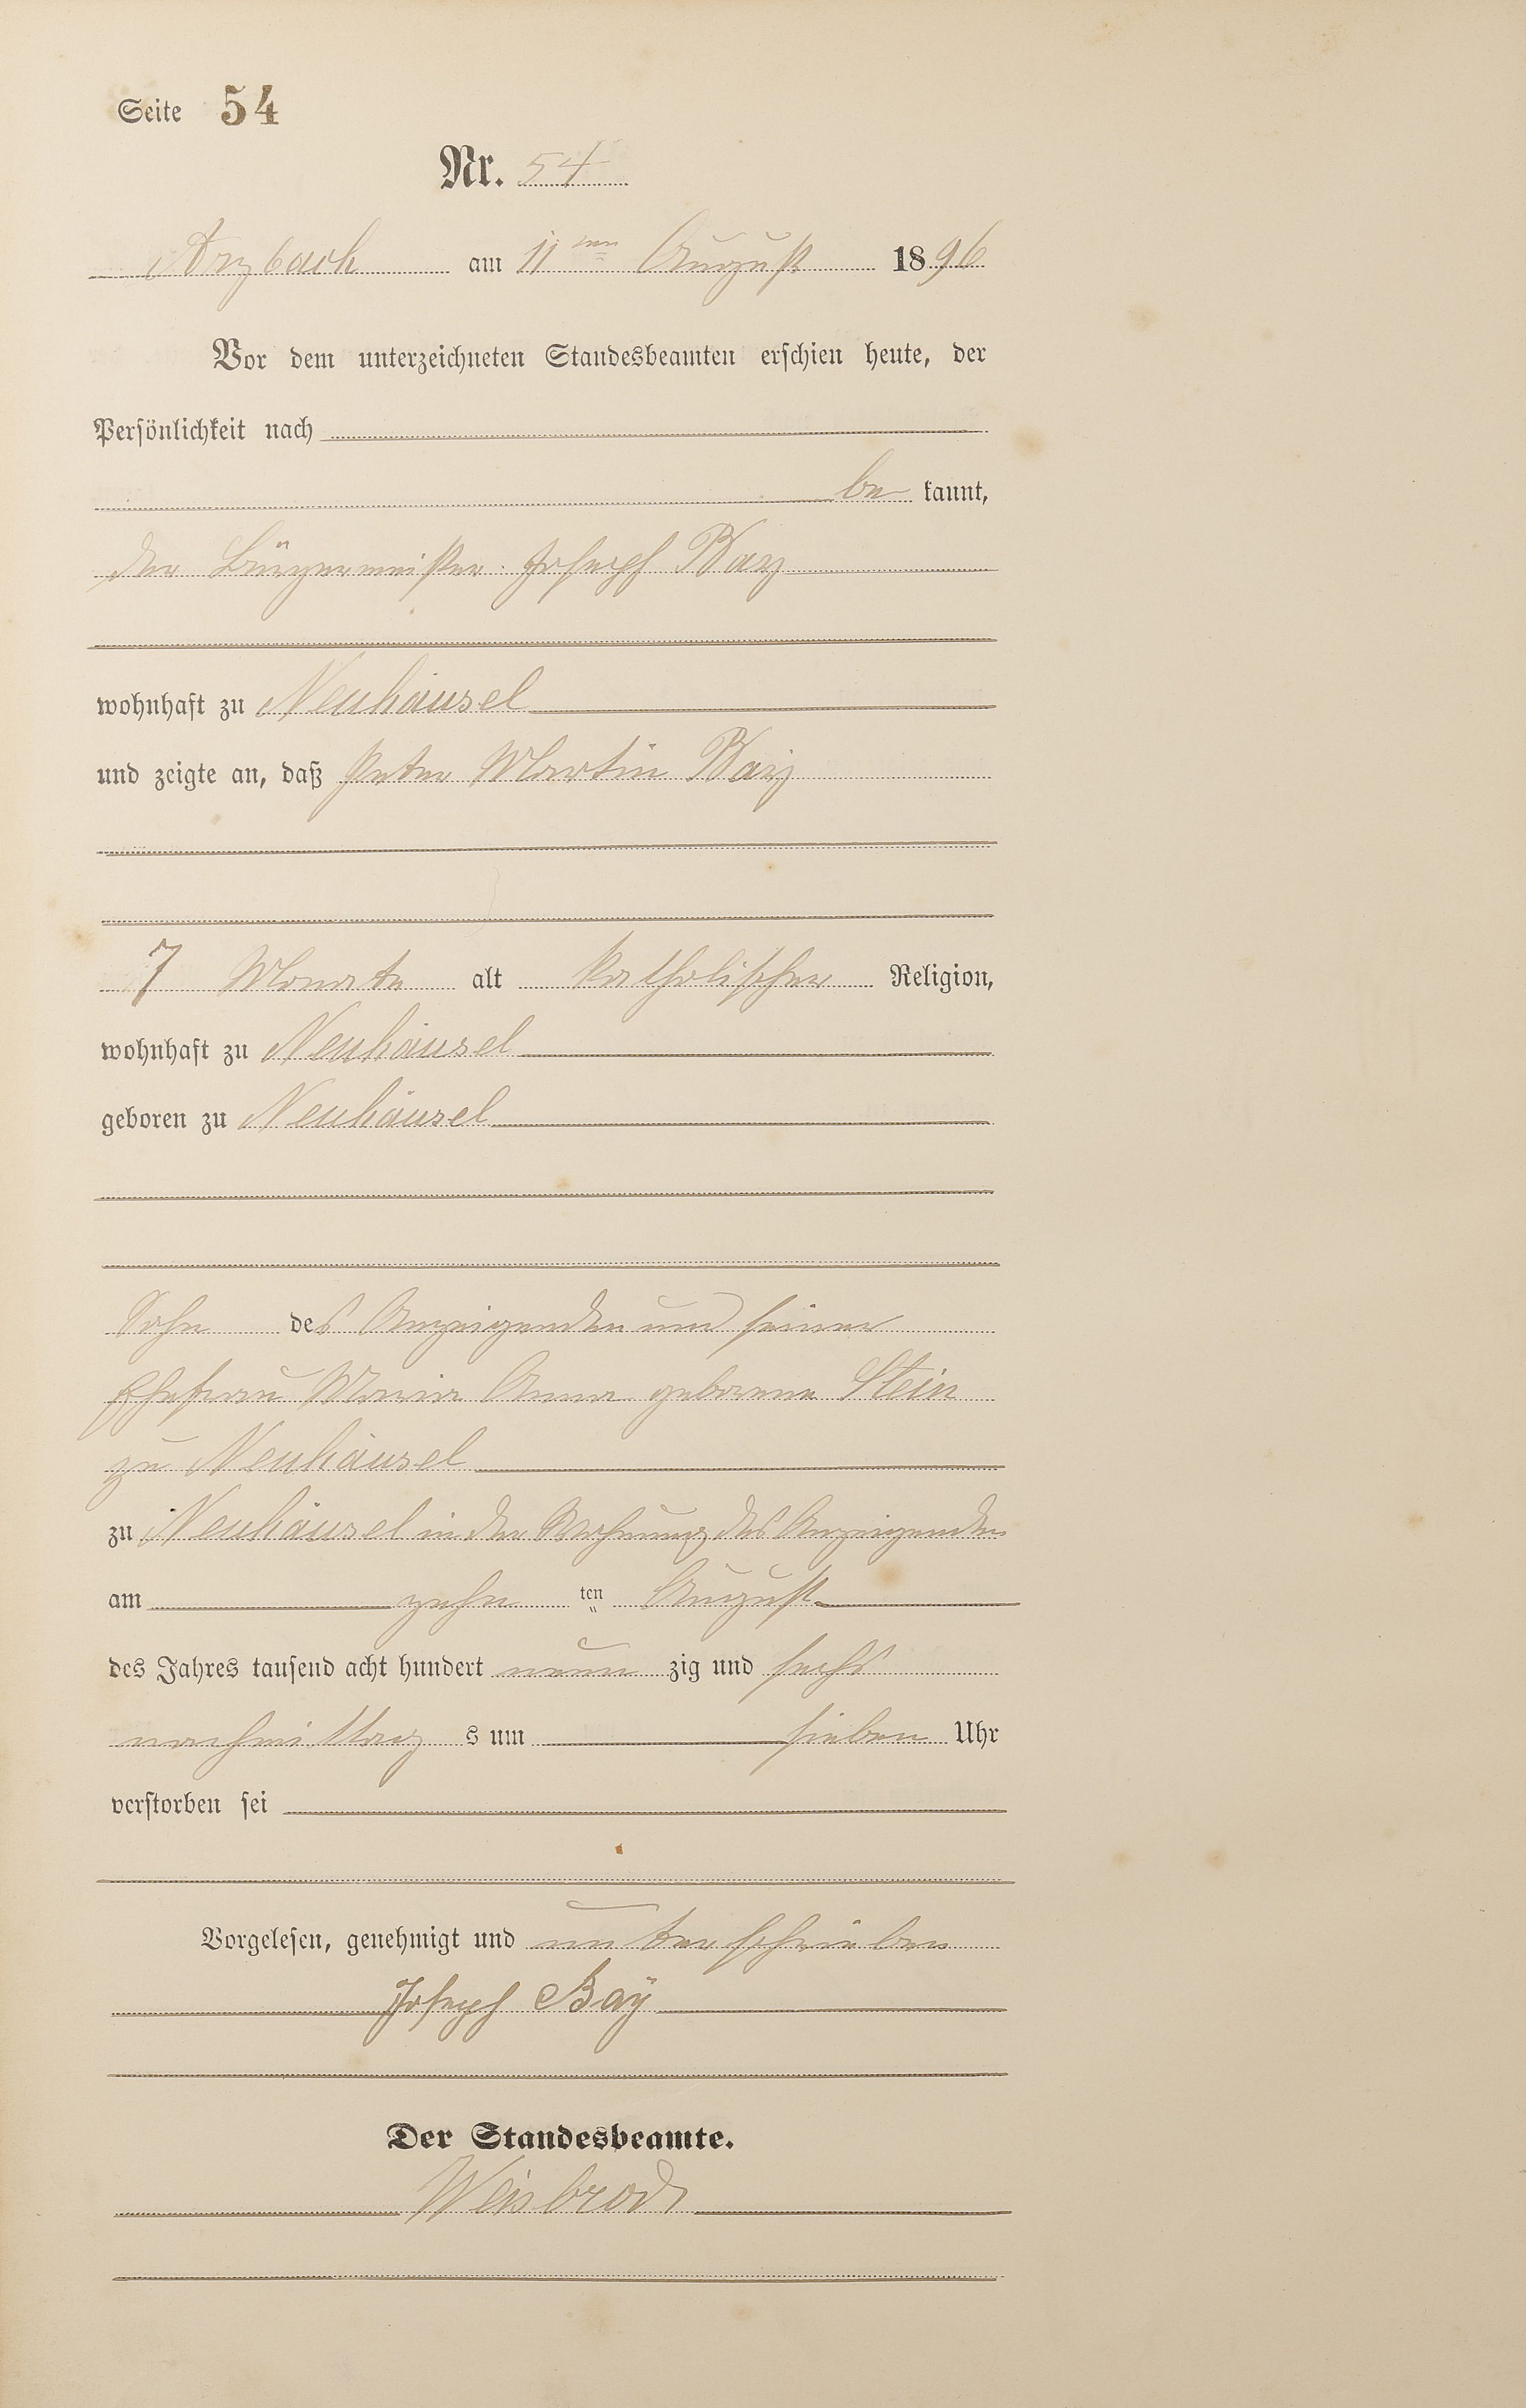 Seite 54
Nr. 54
Arzbach am 11ten August 1896
Vor dem unterzeichneten Standesbeamten erschien heute, der
Persönlichkeit nach
be kannt,
der Bürgermeister Joseph Bay
wohnhaft zu Neuhäusel
und zeigte an, daß Peter Martin Bay
7 Monate alt katholischer Religion,
wohnhaft zu Neuhäusel
geboren zu Neuhäusel
Sohn des Anzeigenden und seiner
Ehefrau Maria Anna geborene Stein
zu Neuhäusel
zu Neuhäusel in der Wohnung des Anzeigenden
am zehn ten August
des Jahres tausend acht hundert neun zig und sechs
nachmittag s um sieben Uhr
verstorben sei
Vorgelesen, genehmigt und unterschrieben
Joseph Baÿ
Der Standesbeamte.
Weisbrod